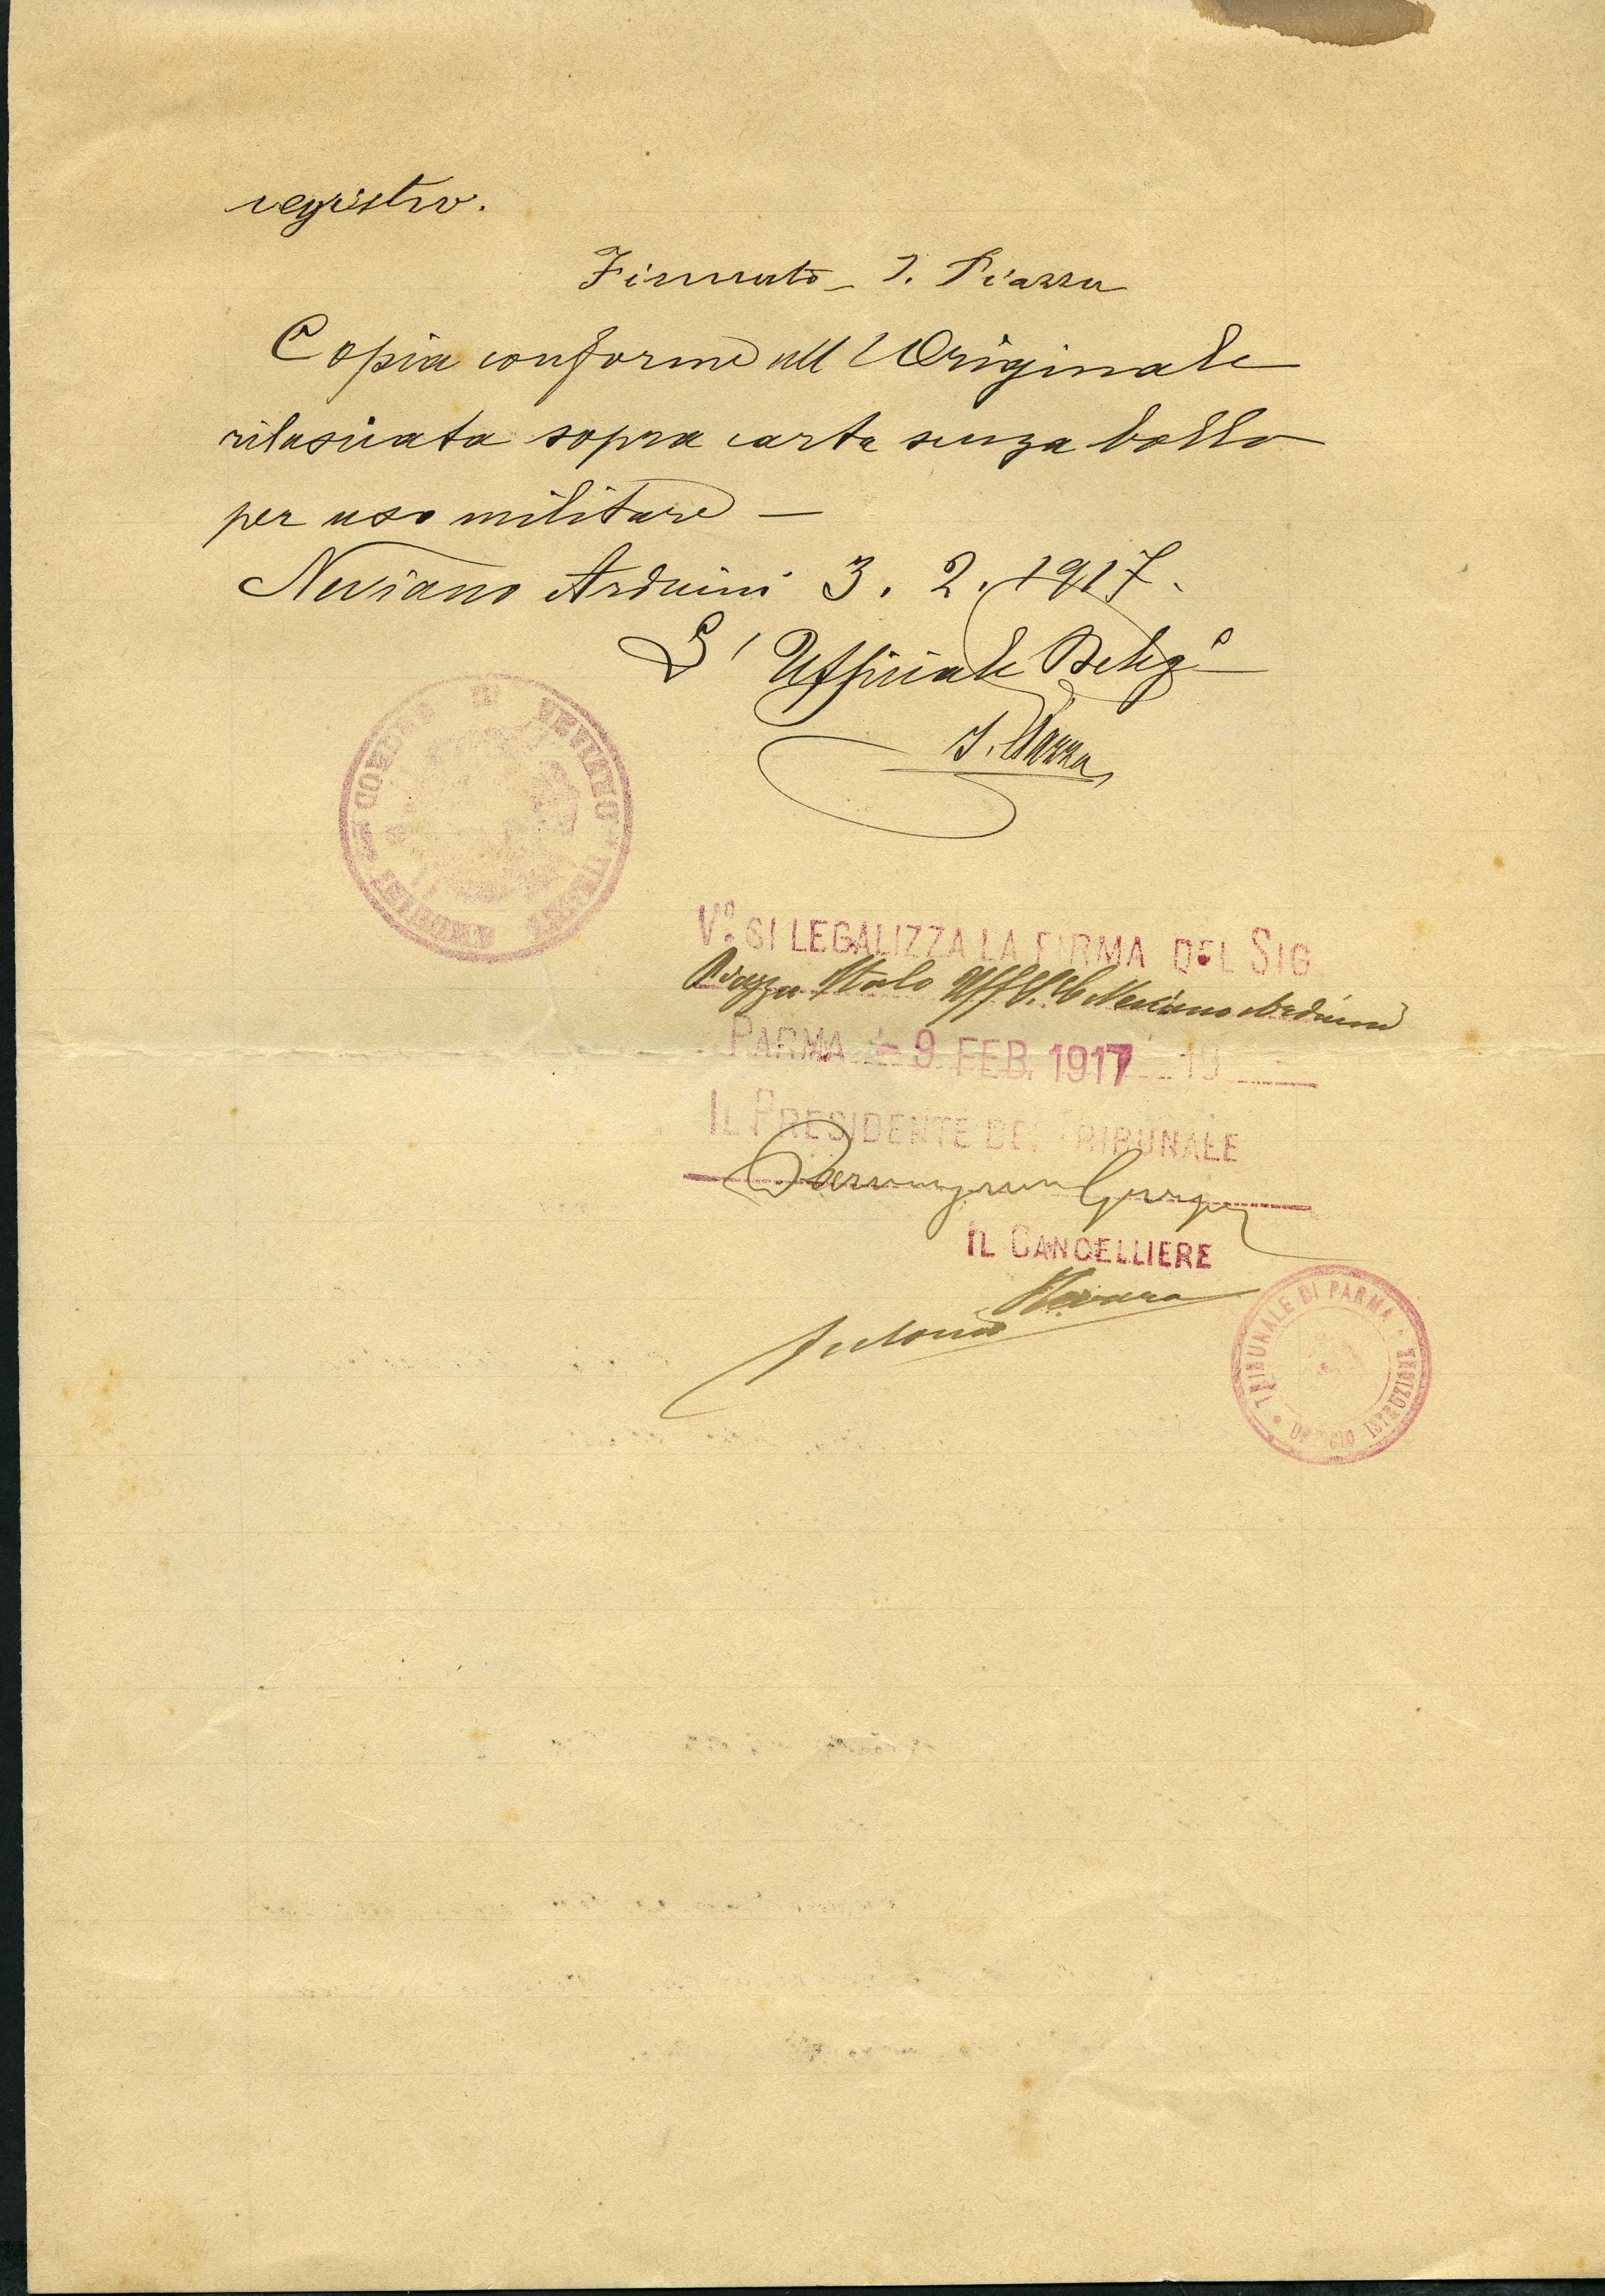 registro.
Firmato - I. Piazza
Copia conforme all'Originale
rilasciata sopra carta senza bollo
per uso militare —
Neviano Arduini 3. 2. 1917.
L'Ufficiale Deleg.°
I. Piazza
COMUNE DI NEVIANO
Vº. SI LEGALIZZA LA FIRMA DEL SIG
Piazza Italo Uff. Neviano Arduini
PARMA - 9 FEB. 1917 19
IL PRESIDENTE DEL TRIBUNALE
IL CANCELLIERE
TRIBUNALE DI PARMA
UFFICIO ISTRUZIONE